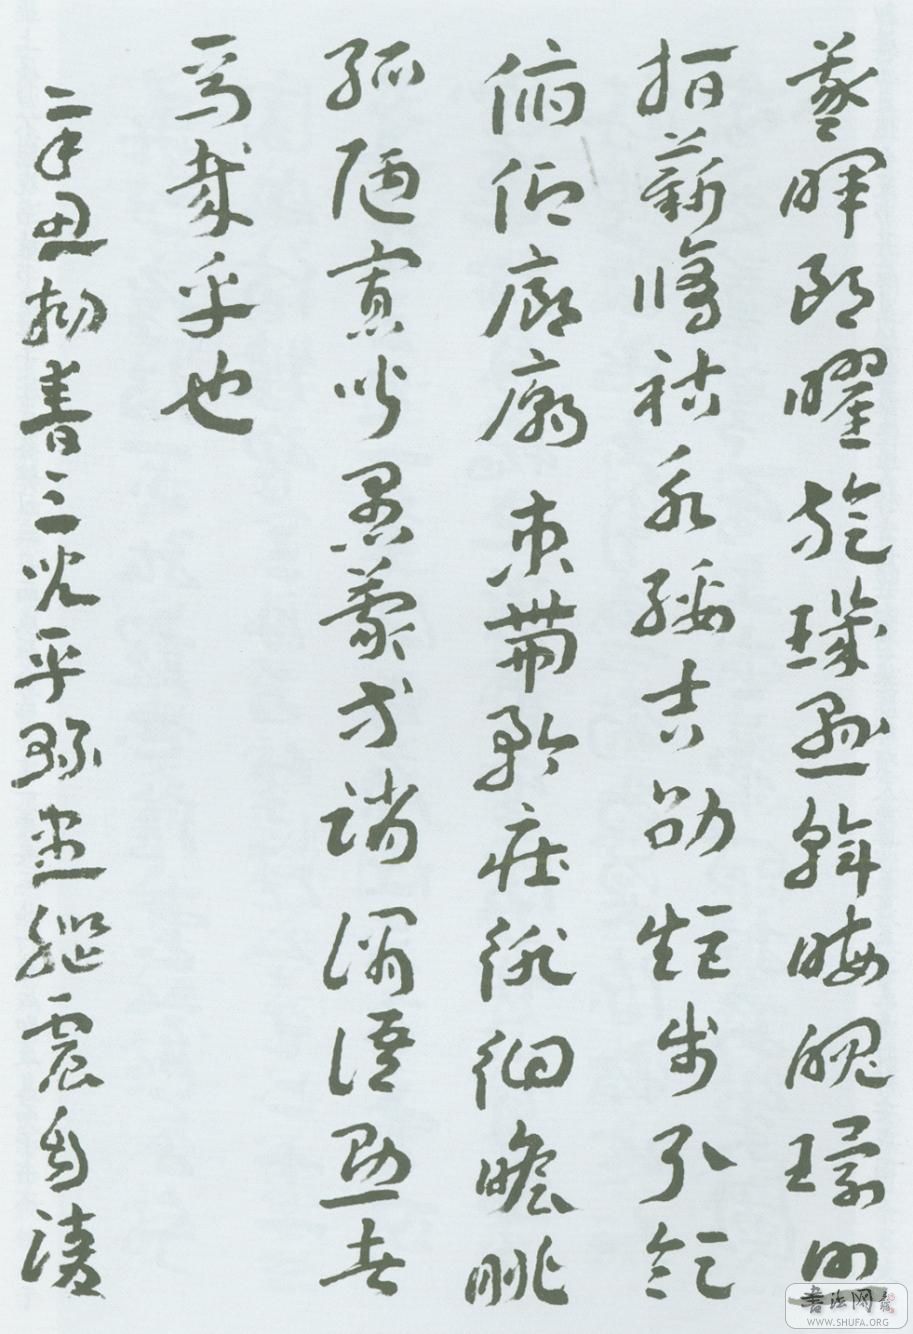 羲暉朗曜旋璣懸斡晦魄環照
指薪脩祜永綏吉劭矩步引領
俯仰廊廟束帶矜莊徘徊瞻眺
孤陋寡聞愚蒙等誚謂語助者
焉哉乎也
辛丑 三 平 震
書法网
WWW.SHUFA.ORG